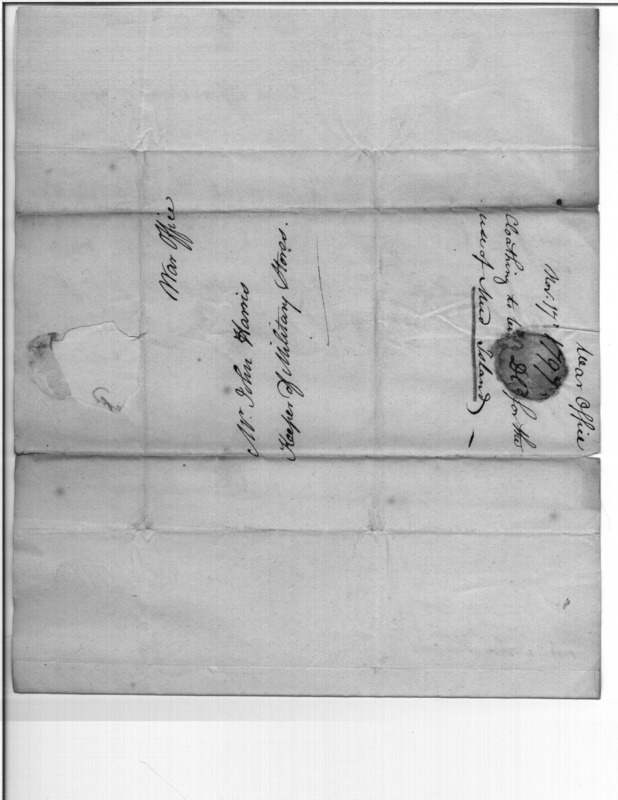 War Office
Mr. John Harris
Keeper of Military Stores.
War Office
Nov. 17. 1797
Cloathing to for the
use of Mud Island